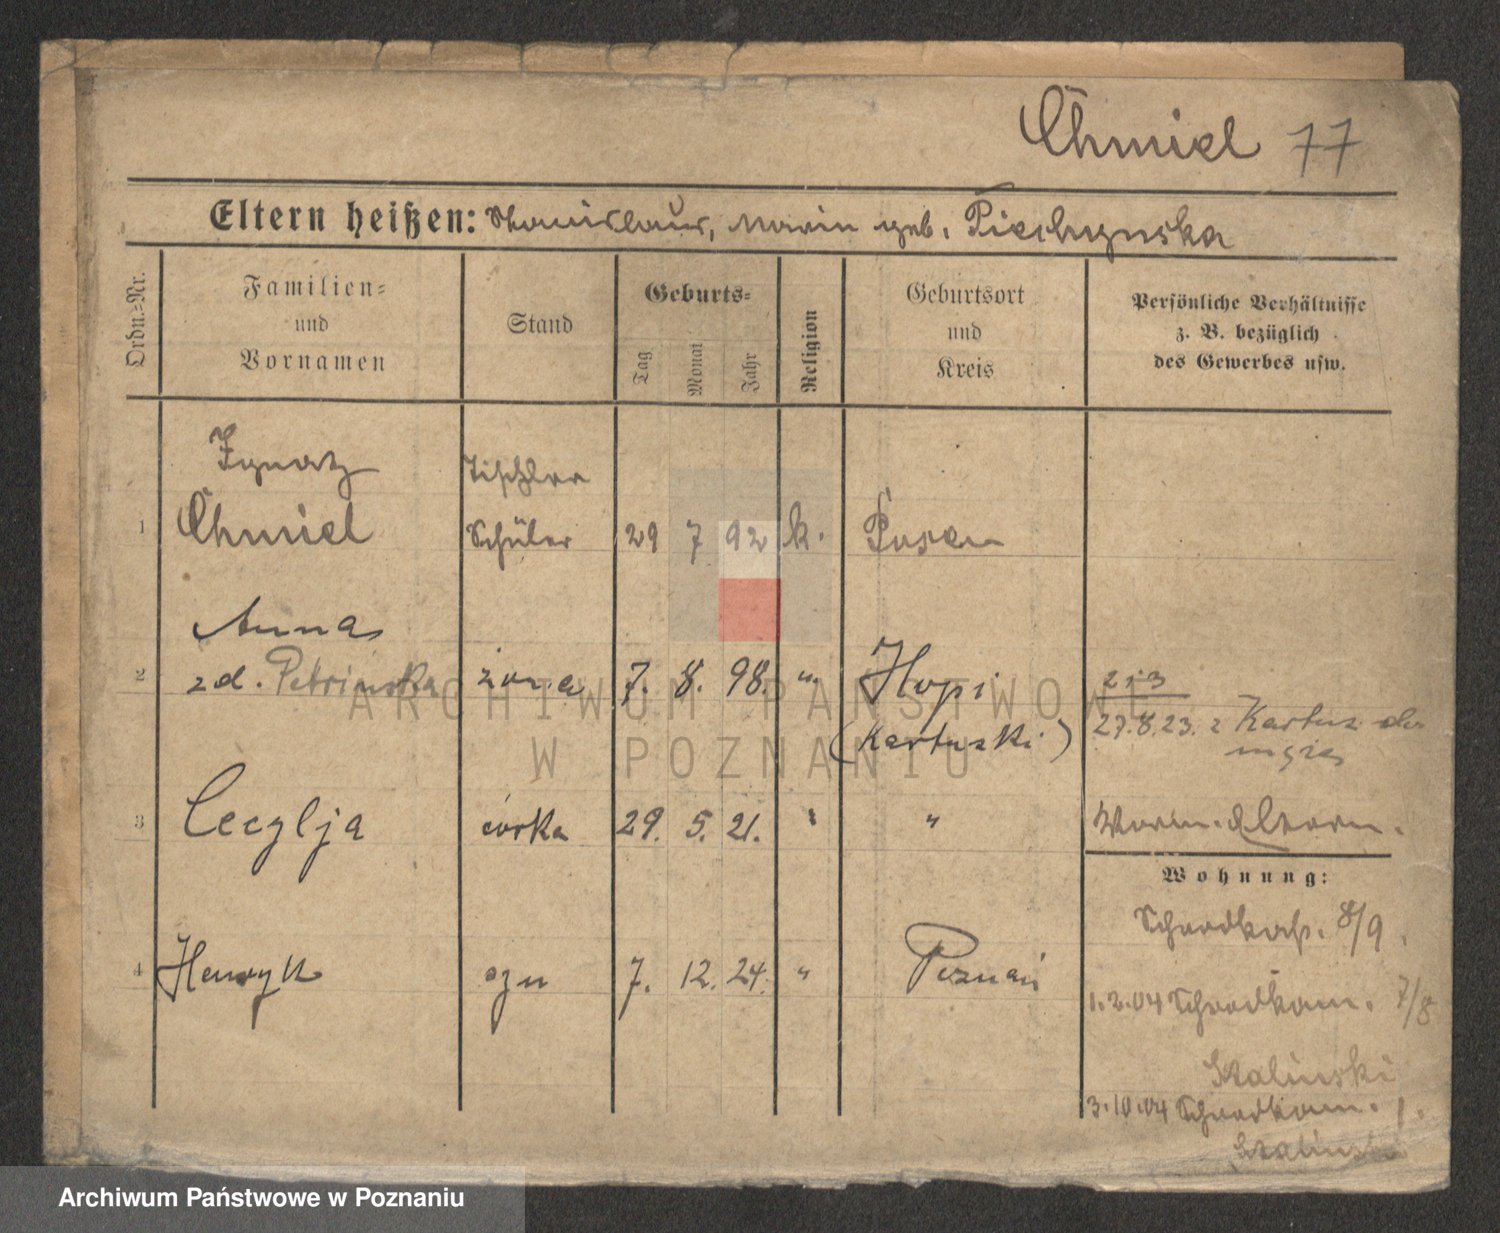 Chmiel 77
Eltern heißen: Stanislaus, Maria geb. Piechynska
Ordn.=Nr.
Familien=
und
Vornamen
Stand
Geburts=
Tag
Monat
Jahr
Religion
Geburtsort
und
Kreis
Persönliche Verhältnisse
z. B. bezüglich
des Gewerbes usw.
Ignatz Tischler
1 Chmiel Schüler 29 7 92 k. Posen
Anna
2 zd. Petrinska żona 7. 8. 98. " Hopi
(Kartuski)
27.8.23. z Kartuz
3 Cecylja córka 29. 5. 21. " "
Eltern.
Wohnung:
8/9
4 Henryk syn 7. 12. 24. " Poznań
1.2.04 7/8
Skalinski
3.10.04 1.
Skalinski
ARCHIWUM PAŃSTWOWE
W POZNANIU
Archiwum Państwowe w Poznaniu